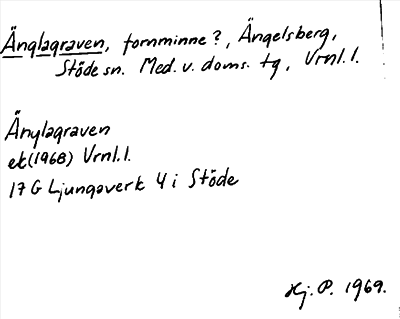 Änglagraven, fornminne?, Ängelsberg,
Stöde sn. Med. v. doms. tg, Vrnl. l.
Änglagraven
ek (1968) Vrnl. l.
17 G Ljungaverk 4 i Stöde
Hj. P. 1969.